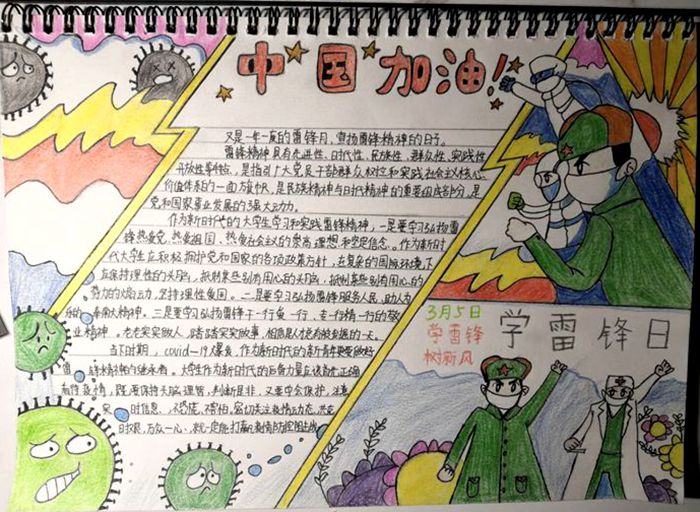 中国加油！
又是一年一度的雷锋月，宣扬雷锋精神的日子。
雷锋精神具有先进性、时代性、民族性、群众性、实践性
开放性等特征，是指引广大党员干部群众树立和实践社会主义核心
价值体系的一面旗帜，是民族精神与时代精神的重要组成部分，是
党和国家事业发展的强大动力。
作为新时代的大学生学习和实践雷锋精神，一是要学习弘扬雷
锋热爱党、热爱祖国、热爱社会主义的崇高理想和坚定信念。作为新时
代大学生应积极拥护党和国家的各项政策方针，在复杂的国际环境下
应保持理性的头脑，抵制某些别有用心的
势力的煽动，坚持理性爱国。二是要学习弘扬雷锋服务人民、助人为
乐的奉献精神。三是要学习弘扬雷锋干一行爱一行、专一行精一行的敬
业精神。老老实实做人，踏踏实实做事，相信是
当下时期，covid-19爆发，作为新时代的新青年要做好
雷锋精神的继承者。大学生作为新时代的后备力量应该
疫情，既要保持头脑理智，判断是非，又要学会保护，注意
时信息，不恐慌，不害怕，密切关注疫情动态，
时艰，万众一心，就一定能打赢疫情防控阻击战
3月5日
学雷锋
树新风
学雷锋日